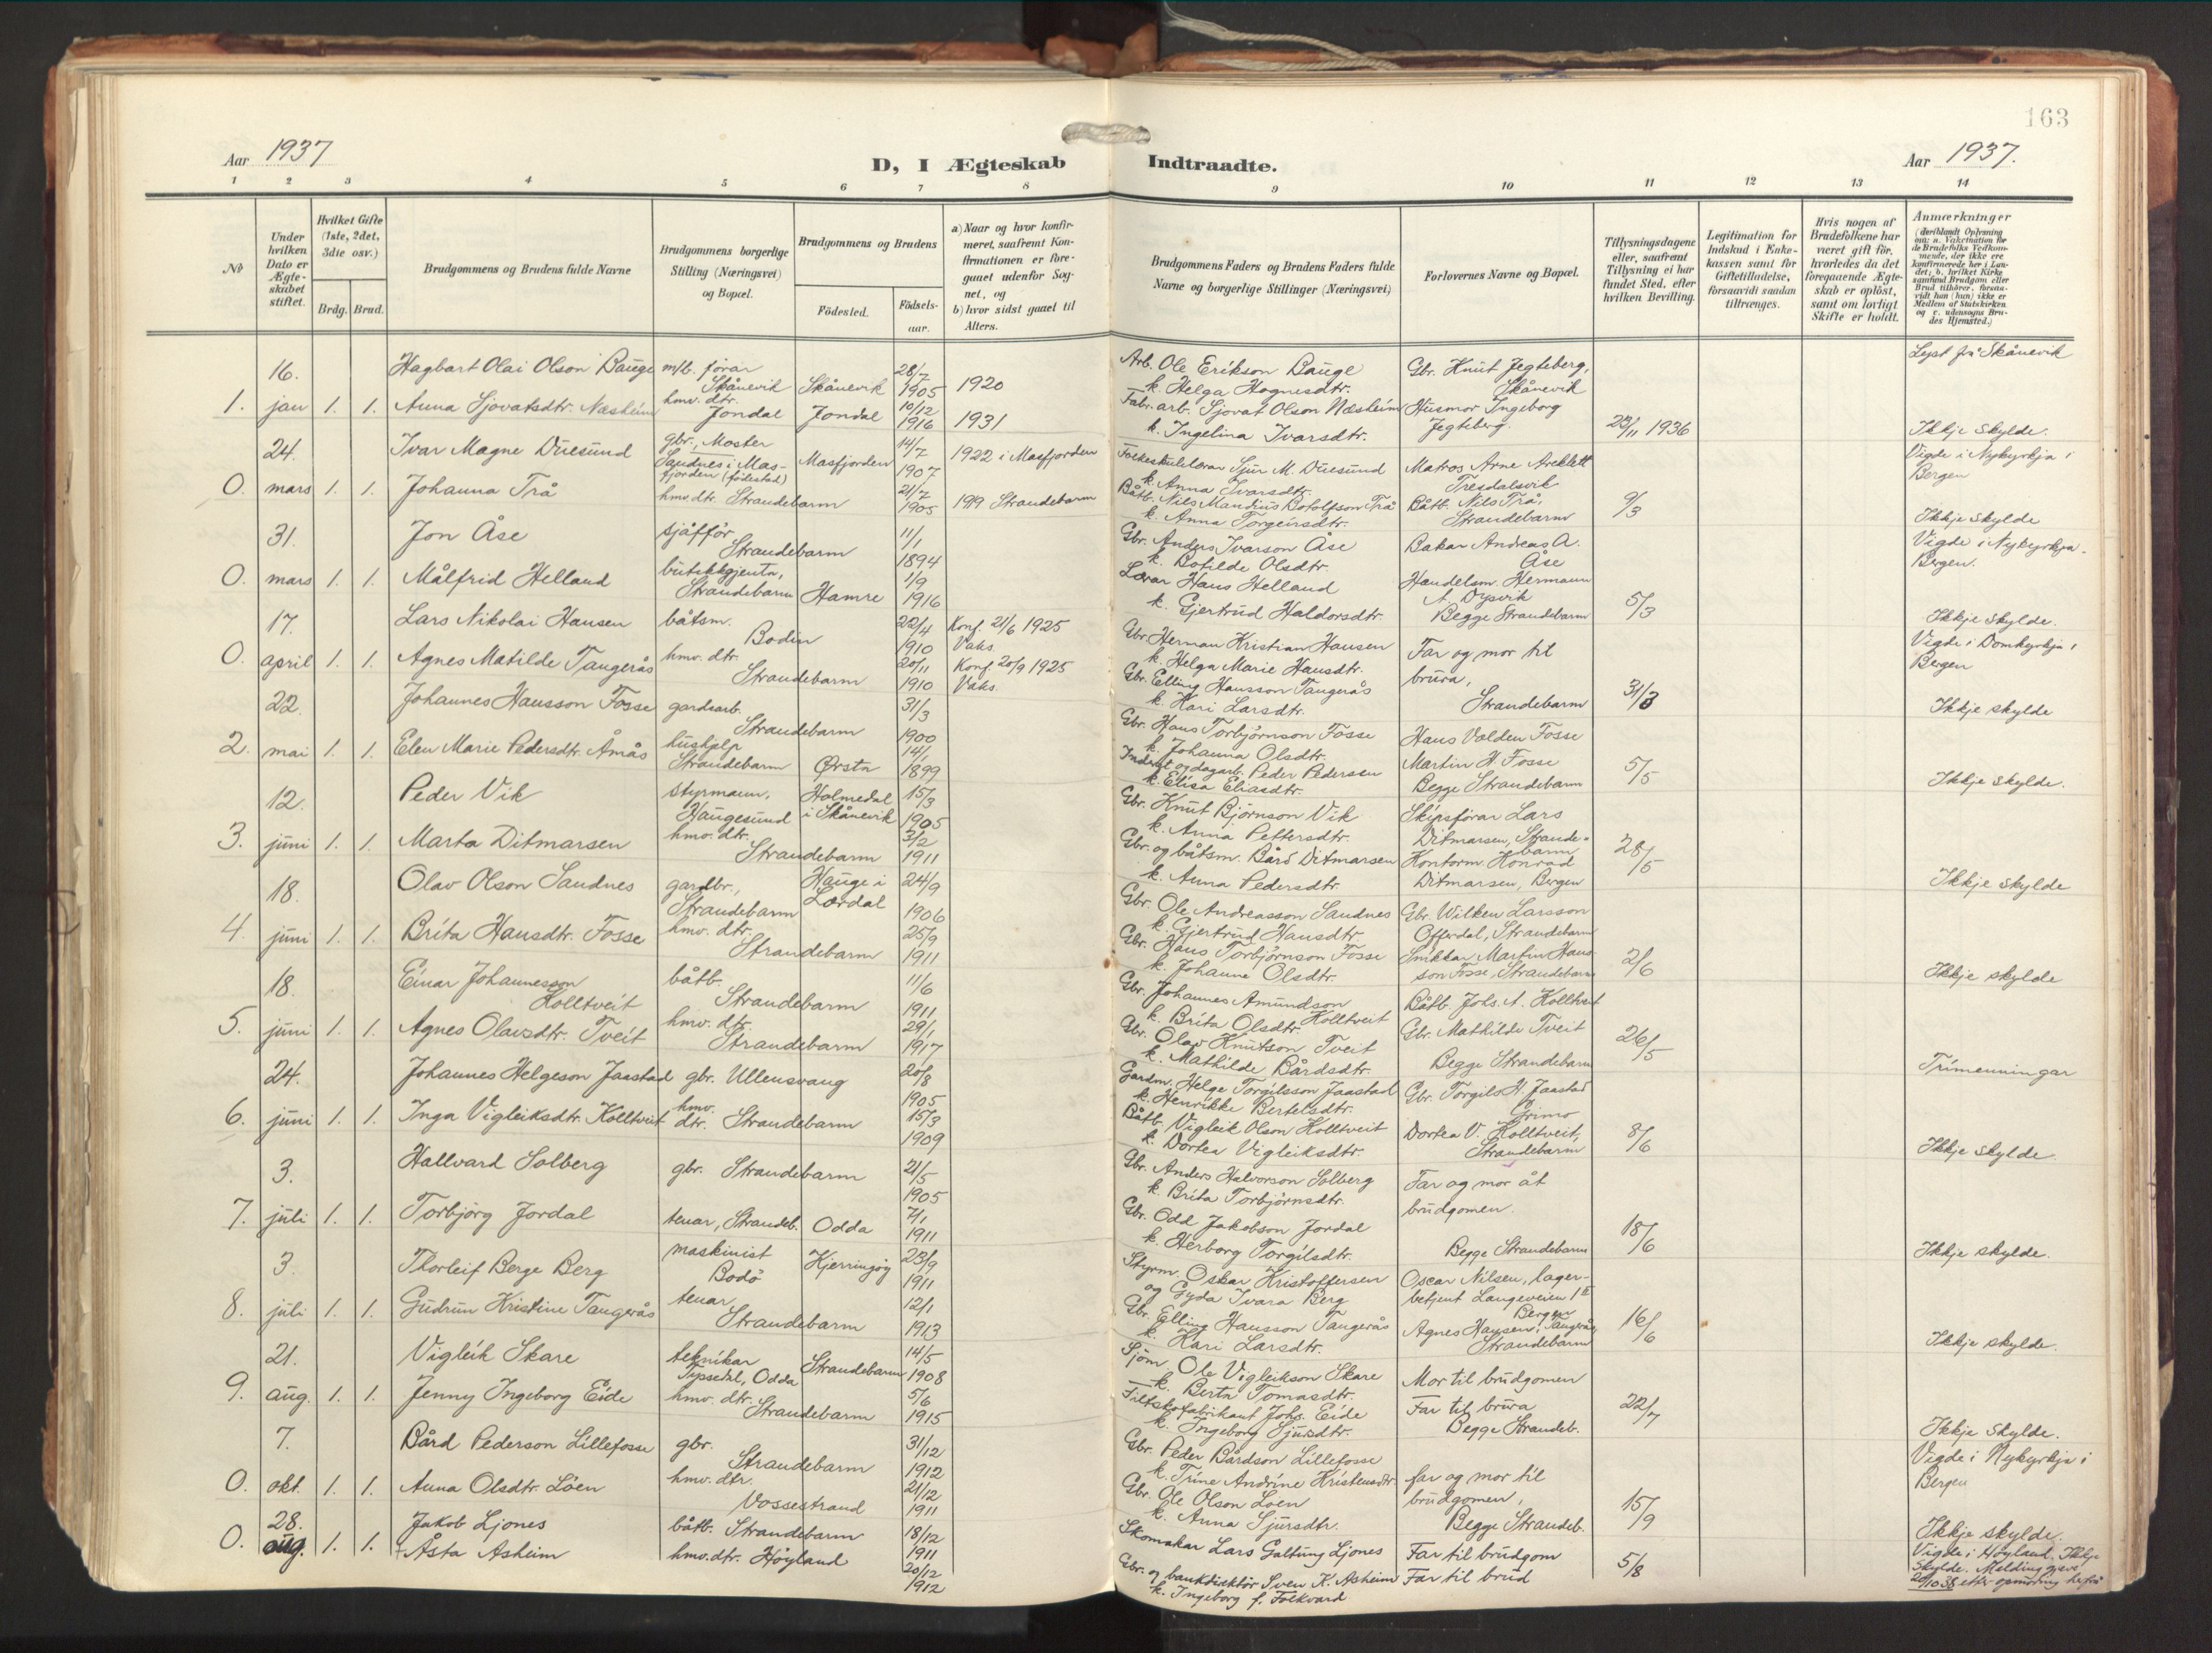 163
Aar 1937
D, I Ægteskab Indtraadte.
Aar 1937.
1 2 3 4 5 6 7 8 9 10 11 12 13 14
No
Under hvilken Dato er Ægteskabet stiftet.
Hvilket Gifte (1ste, 2det, 3die osv.)
Brdg. Brud.
Brudgommens og Brudens fulde Navne
Brudgommens borgerlige Stilling (Næringsvei) og Bopæl.
Brudgommens og Brudens
Födested.
Födselsaar.
a) Naar og hvor konfirmeret, saafremt Konfirmationen er foregaaet udenfor Sognet, og
b) hvor sidst gaaet til Alters.
Brudgommens Faders og Brudens Faders fulde Navne og borgerlige Stillinger (Næringsvei)
Forlovernes Navne og Bopæl.
Tillysningsdagene eller, saafremt Tillysning ei har fundet Sted, efter hvilken Bevilling.
Legitimation for Indskud i Enkekassen samt for Giftetilladelse, forsaavidt saadan tiltrænges.
Hvis nogen af Brudefolkene har været gift för, hvorledes da det foregaaende Ægteskab er oplöst, samt om lovligt Skifte er holdt.
Anmærkninger (deriblandt Oplysning om: a. Vaccination for de Brudefolks Vedkommende, der ikke ere konfirmerede her i Landet; b. hvilket Kirkesamfund Brudgom eller Brud tilhörer, forsaavidt han (hun) ikke er Medlem af Statskirken og c. udensogns Brudes Hjemsted.)
1. 16. jan 1. 1.
Hagbart Olai Olson Bauge m/b. förar Skånevik Skånevik 28/7 1905 1920
Anna Sjovatsdtr. Næsheim hmv. dtr. Jondal Jondal 10/12 1916 1931
Arb. Ole Erikson Bauge
k. Helga Hognesdtr.
Fabr. arb. Sjovat Olson Næsheim
k. Ingelina Ivarsdtr.
Gbr. Knut Jegteberg, Skånevik
Husmor Ingeborg Jegteberg.
23/11 1936
Lyst frå Skånevik
Ikkje skylde.
0. 24. mars 1. 1.
Ivar Magne Duesund gbr., Moster Sandnes i Masfjorden (födestad) Masfjorden 14/7 1907 1922 i Masfjorden
Johanna Trå hmv. dtr. Strandebarm 21/7 1905 1919 Strandebarm
Folkeskulelærar Sjur M. Duesund
k. Anna Ivarsdtr.
Båtb. Nils Mandrus Botolfson Trå
k. Anna Torgeirsdtr.
Matros Arne Areklett Tresdalsvik
Båtb. Nils Trå, Strandebarm
9/3
Vigde i Nykyrkja i Bergen
Ikkje skylde
0. 31. mars 1. 1.
Jon Åse sjåfför Strandebarm 11/1 1894
Målfrid Helland butikkgjenta, Strandebarm Hamre 1/9 1916
Gbr. Anders Ivarson Åse
k. Botilde Olsdtr.
Lærar Hans Helland
k. Gjertrud Haldorsdtr.
Bakar Andreas A. Åse
Handelsm. Hermann A. Dysvik
Begge Strandebarm
5/3
Vigde i Nykyrkja. Bergen.
Ikkje skylde.
0. 17. april 1. 1.
Lars Nikolai Hansen båtsm. Bodin 22/4 1910 Konf. 21/6 1925 Vaks.
Agnes Matilde Tangerås hmv. dtr. Strandebarm 20/11 1910 Konf. 20/9 1925 Vaks.
Gbr. Herman Kristian Hansen
k. Helga Marie Hansdtr.
Gbr. Elling Hansson Tangerås
k. Kari Larsdtr.
Far og mor til brura, Strandebarm
31/3
Vigde i Domkyrkja i Bergen
Ikkje skylde
2. 22. mai 1. 1.
Johannes Hansson Fosse gardsarb. Strandebarm 31/3 1900
Elen Marie Pedersdtr. Åmås hushjelp Strandebarm Ørsta 14/1 1899
Gbr. Hans Torbjörnson Fosse
k. Johanna Olsdtr.
Inderst og dagarb. Peder Pedersen
k. Elisa Eliasdtr.
Hans Valden Fosse
Martin H. Fosse
Begge Strandebarm
5/5
Ikkje skylde.
3. 12. juni 1. 1.
Peder Vik styrmann, Haugesund Holmedal i Skånevik 15/3 1905
Marta Ditmarsen hmv. dtr. Strandebarm 3/2 1911
Gbr. Knut Björnson Vik
k. Anna Pettersdtr.
Gbr. og båtsm. Bård Ditmarsen
k. Anna Pedersdtr.
Skipsförar Lars Ditmarsen, Strandebarm
Kontorm. Konrad Ditmarsen, Bergen
28/5
Ikkje skylde
4. 18. juni 1. 1.
Olav Olson Sandnes gardbr., Strandebarm Hauge i Lærdal 24/9 1906
Brita Hansdtr. Fosse hmv. dtr. Strandebarm 25/9 1911
Gbr. Ole Andreasson Sandnes
k. Gjertrud Hansdtr
Gbr. Hans Torbjörnson Fosse
k. Johanne Olsdtr.
Gbr. Wilken Larsson Offerdal, Strandebarm
Snikkar Martin Hansson Fosse, Strandebarm
2/6
Ikkje skylde
5. 18. juni 1. 1.
Einar Johannesson Kolltveit båtb. Strandebarm 11/6 1911
Agnes Olavsdtr. Tveit hmv. dtr. Strandebarm 29/1 1917
Gbr. Johannes Amundson Kolltveit
k. Brita Olsdtr.
Gbr. Olav Knutson Tveit
k. Mathilde Bårdsdtr.
Båtb. Johs. A. Kolltveit
Gbr. Mathilde Tveit
Begge Strandebarm
26/5
Trimenningar
6. 24. juni 1. 1.
Johannes Helgeson Jaastad gbr. Ullensvang 20/8 1905
Inga Vigleiksdtr. Kolltveit hmv. dtr. Strandebarm 15/3 1909
Gardm. Helge Torgilsson Jaastad
k. Henrikke Bertelsdtr.
Båtb. Vigleik Olson Kolltveit
k. Dortea Vigleiksdtr.
Gbr. Torgils H. Jaastad Grimo
Dortea V. Kolltveit, Strandebarm
8/6
Ikkje skylde.
7. 3. juli 1. 1.
Hallvard Solberg gbr. Strandebarm 21/5 1905
Torbjörg Jordal tenar, Strandeb. Odda 7/1 1911
Gbr. Anders Halvorson Solberg
k. Brita Torbjörnsdtr.
Gbr. Odd Jakobson Jordal
k. Herborg Torgilsdtr.
Far og mor åt brudgomen.
Begge Strandebarm
18/6
Ikkje skylde.
8. 3. juli 1. 1.
Thorleif Berge Berg maskinist Bodö Kjerringöy 23/9 1911
Gudrun Kristine Tangerås tenar Strandebarm 12/1 1913
Styrm. Oskar Kristoffersen
og Gyda Ivara Berg
Gbr. Elling Hansson Tangerås
k. Kari Larsdtr.
Oscar Nilsen, lagerbetjent Langeveien 1 II Bergen
Agnes Hansen, Tangerås, Strandebarm
16/6
Ikkje skylde.
9. 21. aug. 1. 1.
Vigleik Skare teknikar Tyssedal, Odda Strandebarm 14/5 1908
Jenny Ingeborg Eide hmv. dtr. Strandebarm 5/6 1915
Sjöm. Ole Vigleikson Skare
k. Berta Tomasdtr.
Filtskofabrikant Johs. Eide
k. Ingeborg Sjursdtr.
Mor til brudgomen
Far til brura
Begge Strandeb.
22/7
Ikkje skylde.
0. 7. okt. 1. 1.
Bård Pederson Lillefosse gbr. Strandebarm 31/12 1912
Anna Olsdtr. Löen hmv. dtr. Vossestrand 21/12 1911
Gbr. Peder Bårdson Lillefosse
k. Trine Andrine Kristensdtr
Gbr. Ole Olson Loen
k. Anna Sjursdtr.
far og mor til brudgomen,
Begge Strandeb.
15/9
Vigde i Nykyrkja i Bergen
Ikkje skylde.
0. 28. aug. 1. 1.
Jakob Ljones båtb. Strandebarm 18/12 1911
Åsta Asheim hmv. dtr. Höyland 20/12 1912
Skomakar Lars Galtung Ljones
Gbr. og bankdirektör Sven K. Asheim
k. Ingeborg f. Folkvard
Far til brudgom
Far til brud
5/8
Vigde i Höyland. Ikkje skylde. Melding gjeve 20/10 38 etter opmoding herfrå